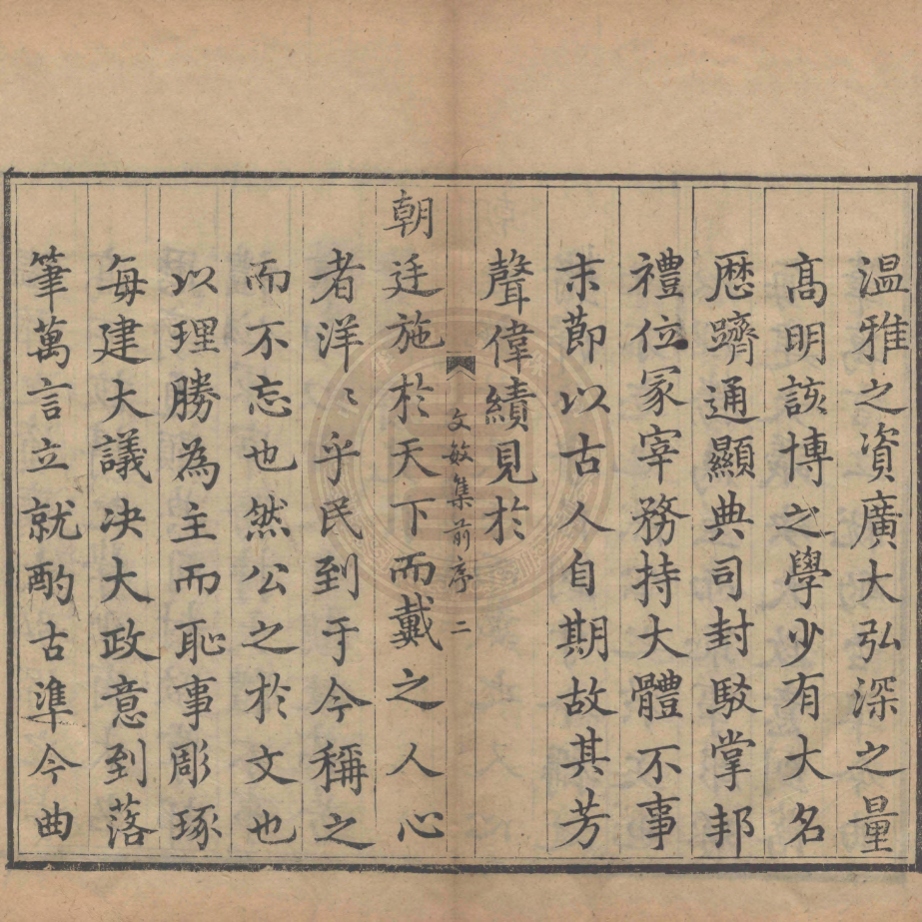 温雅之資廣大弘深之量
髙明該博之學少有大名
歴躋通顯典司封駁掌邦
禮位冢宰務持大體不事
末節以古人自期故其芳
聲偉績見於
文敏集前序 二
朝廷施於天下而戴之人心
者洋〻乎民到于今稱之
而不忘也然公之於文也
以理勝為主而恥事彫琢
每建大議决大政意到落
筆萬言立就酌古準今曲